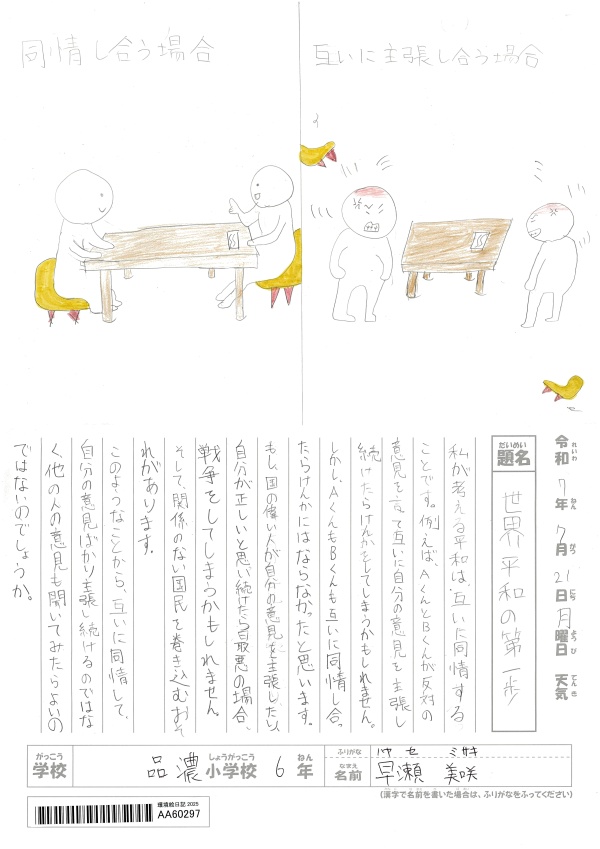 同情し合う場合
互いに主張し合う場合
令和7年7月21日月曜日 天気
れいわ ねん がつ にち ようび てんき
だいめい
題名
世界平和の第一歩
私が考える平和は、互いに同情する
ことです。例えば、AくんとBくんが反対の
意見を言って互いに自分の意見を主張し
続けたらけんかをしてしまうかもしれません。
しかし、AくんもBくんも互いに同情し合っ
たらけんかにはならなかったと思います。
もし、国の偉い人が自分の意見を主張したい、
自分が正しいと思い続けたら最悪の場合、
戦争をしてしまうかもしれません。
そして、関係のない国民を巻き込むおそ
れがあります。
このようなことから、互いに同情して、
自分の意見ばかり主張し続けるのではな
く、他の人の意見も聞いてみたらよいの
ではないのでしょうか。
がっこう
学校
品濃
しょうがっこう
小学校
6
ねん
年
ふりがな
ハヤセ ミサキ
なまえ
名前
早瀬 美咲
(漢字で名前を書いた場合は、ふりがなをふってください)
環境絵日記 2025
AA60297